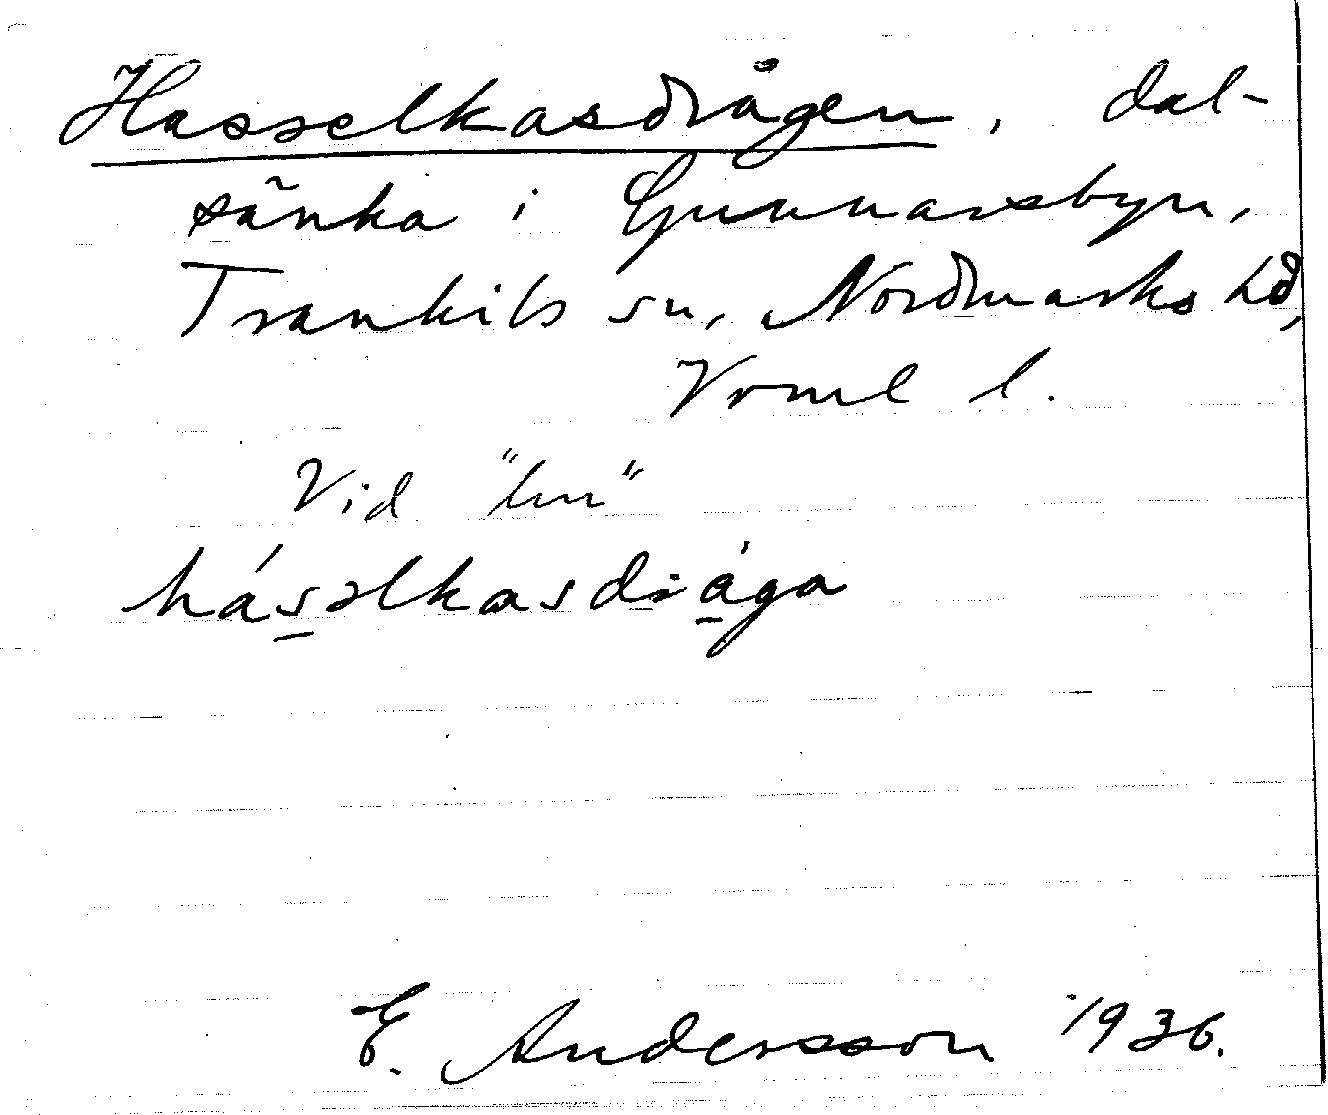 Hasselkasdrågen, dal-
sänka i Gunnarsbyn,
Trankils sn, Nordmarks hd,
Vrml l.
Vid "lin"
hásəlkasdråga
E. Andersson 1936.